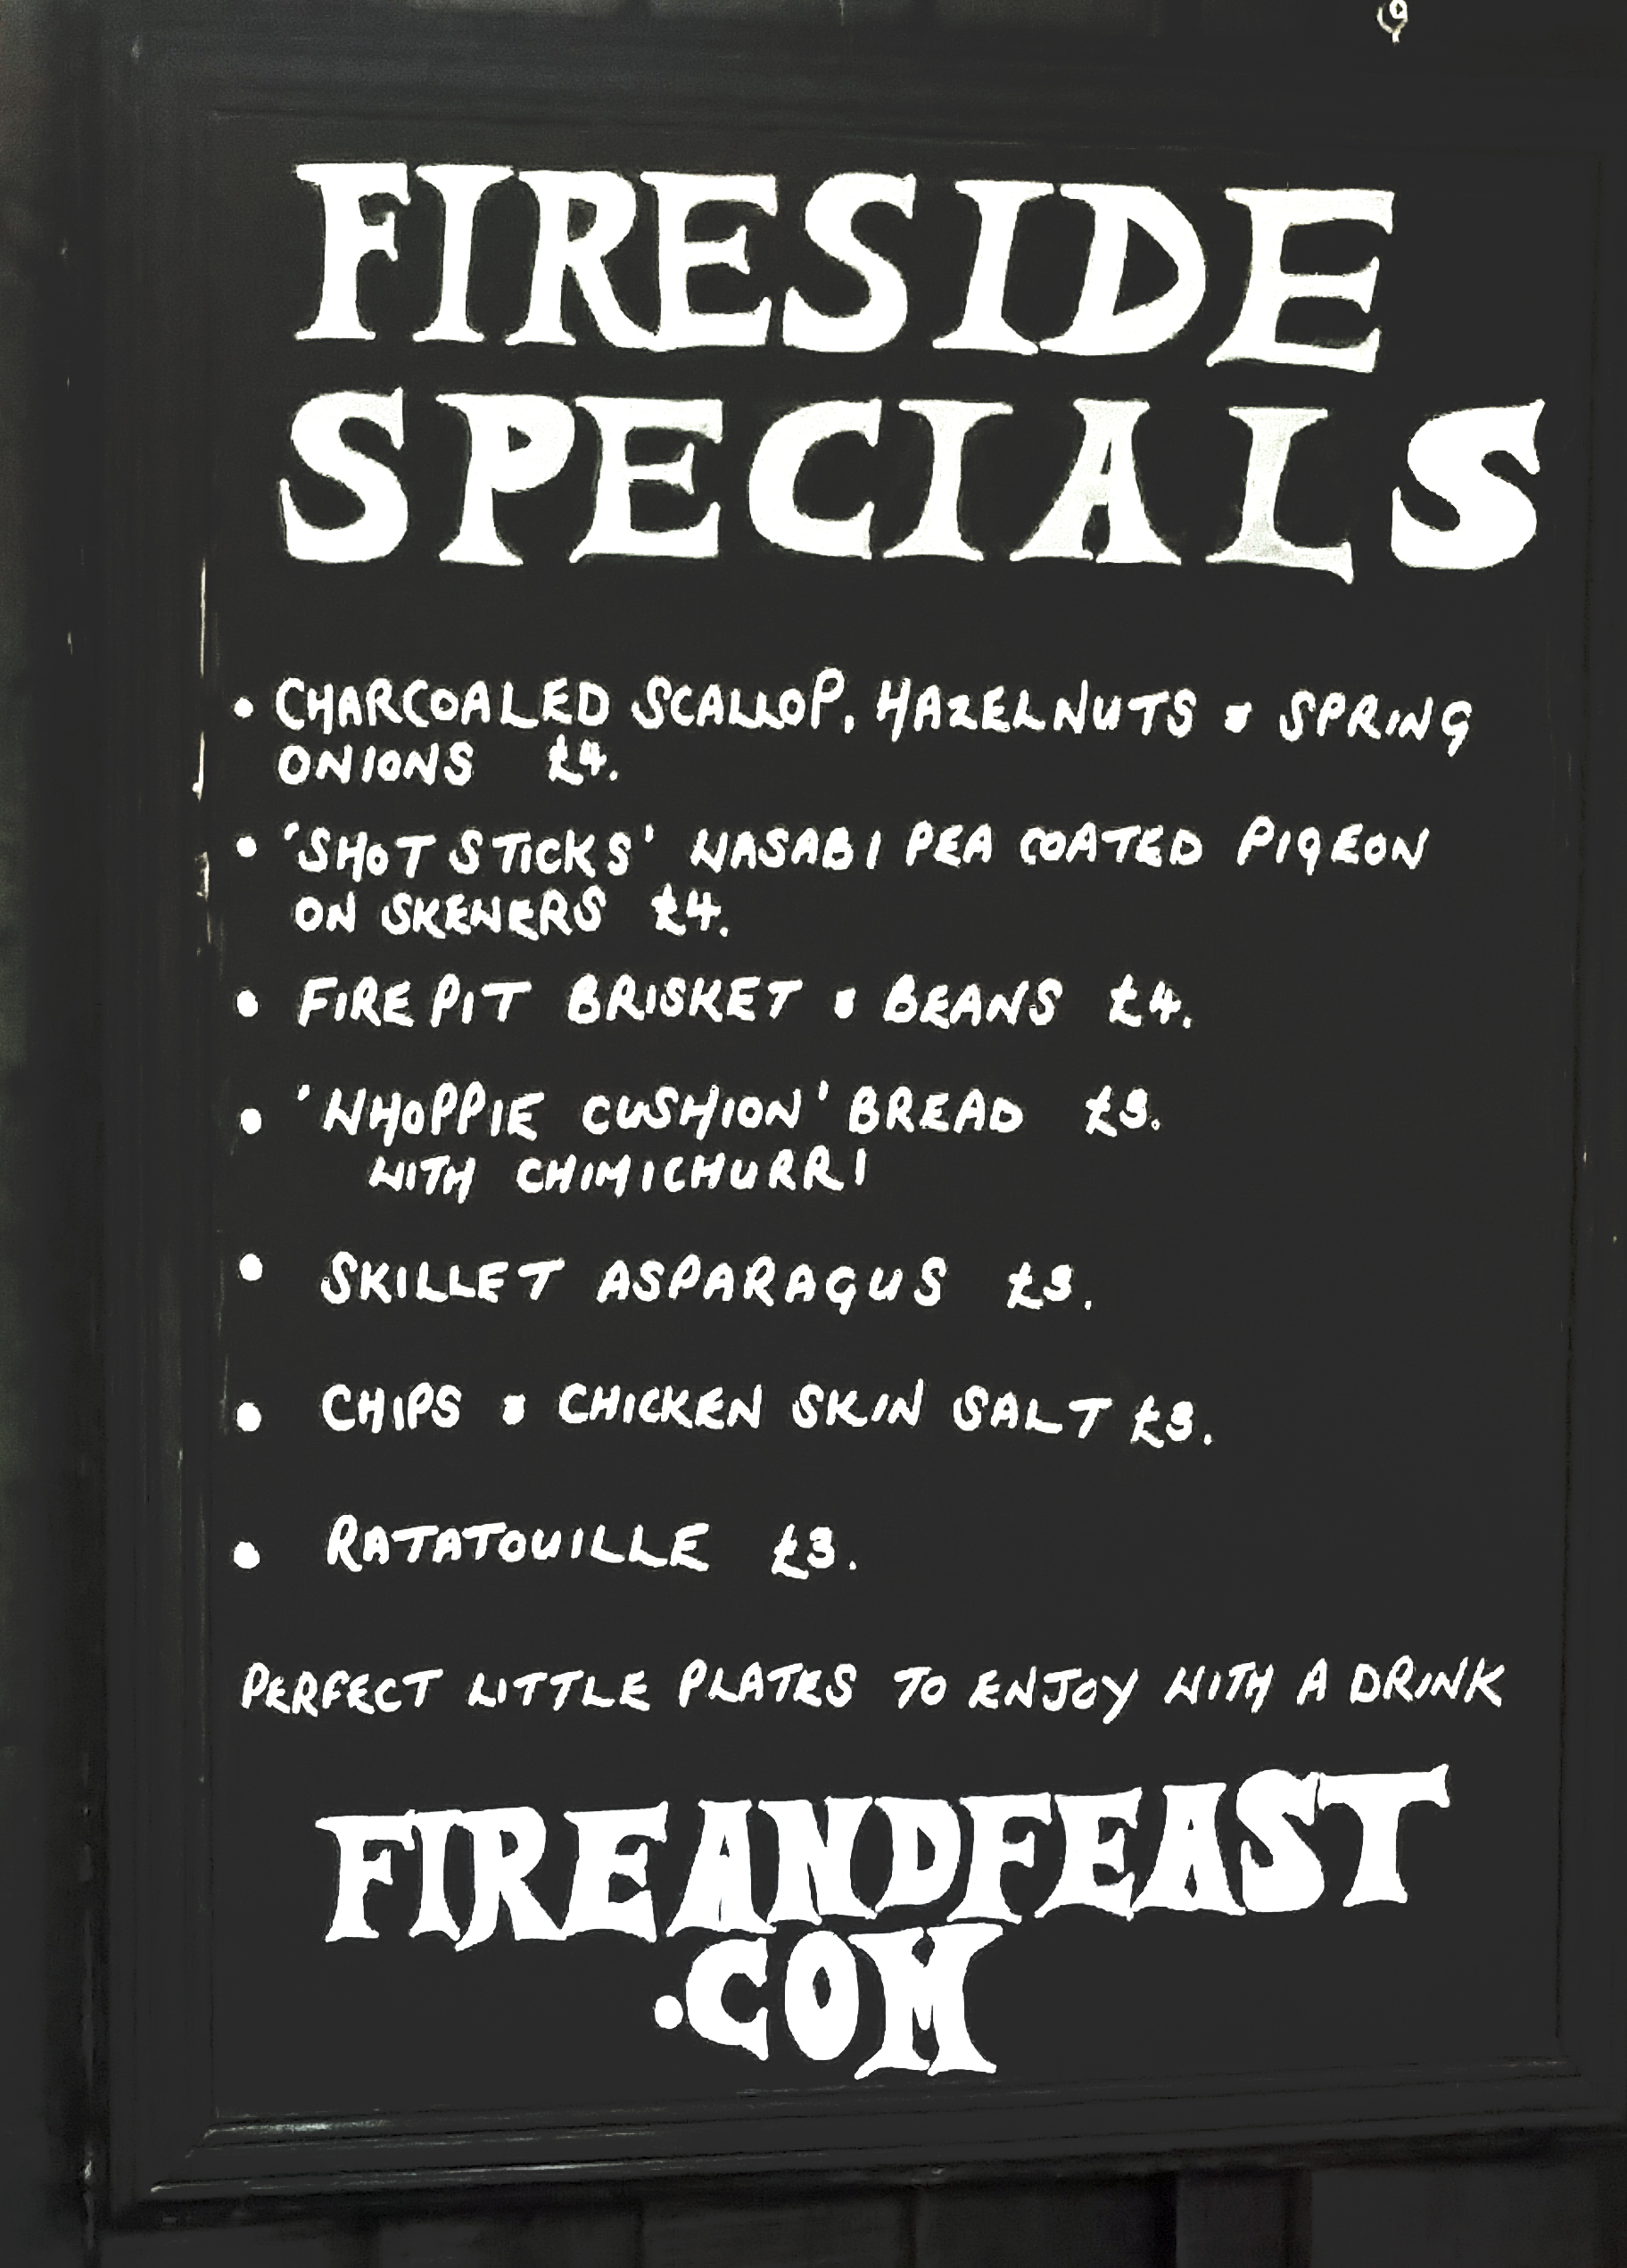 FIRESIDE
SPECIALS
• CHARCOALED SCALLOP, HAZELNUTS & SPRING
ONIONS £4.
• 'SHOT STICKS' WASABI PEA COATED PIGEON
ON SKEWERS £4.
• FIRE PIT BRISKET & BEANS £4.
• 'WHOPPIE CUSHION' BREAD £3.
WITH CHIMICHURRI
• SKILLET ASPARAGUS £3.
• CHIPS & CHICKEN SKIN SALT £3.
• RATATOUILLE £3.
PERFECT LITTLE PLATES TO ENJOY WITH A DRINK
FIREANDFEAST
.COM